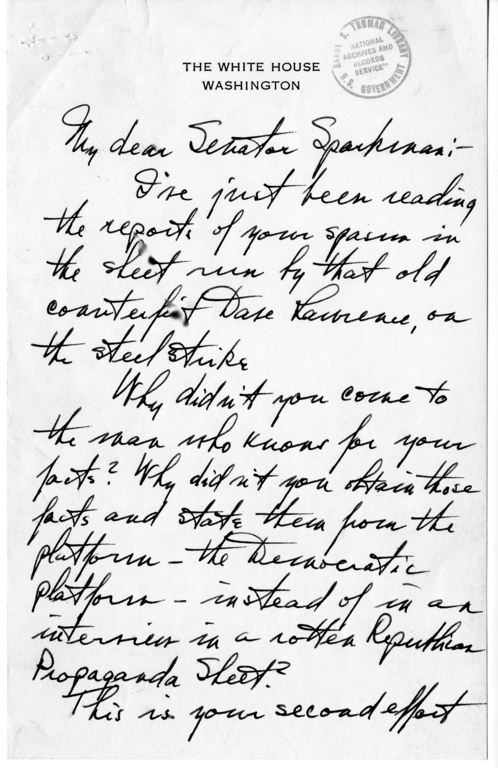 THE WHITE HOUSE
WASHINGTON
HARRY S. TRUMAN LIBRARY
"NATIONAL
ARCHIVES AND
RECORDS
SERVICE"
U.S. GOVERNMENT
My dear Senator Sparkman:-
I've just been reading
the reports of your spasm in
the sheet run by that old
counterfit Dave Lawrence, on
the steel strike
Why didn't you come to
the man who knows for your
facts? Why didn't you obtain those
facts and state them from the
platform - the Democratic
platform - instead of in an
interview in a rotten Reputhican
Propaganda Sheet?
This is your second effort